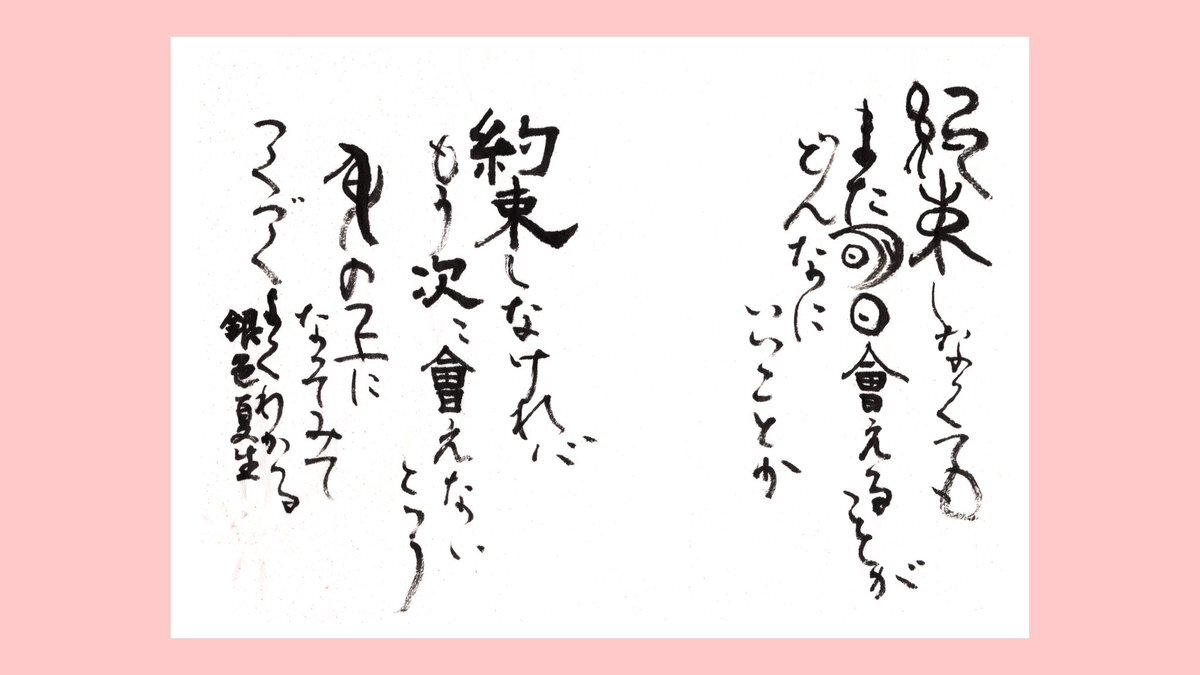 約束しなくても
また明日會えることが
どんなに
いいことか
約束しなければ
もう次に會えない
という
身の上に
なってみて
つくづく
よくわかる
銀色夏生